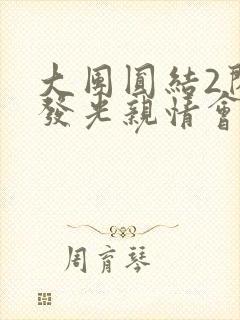 大團圓結2
發光親情會
周育琴